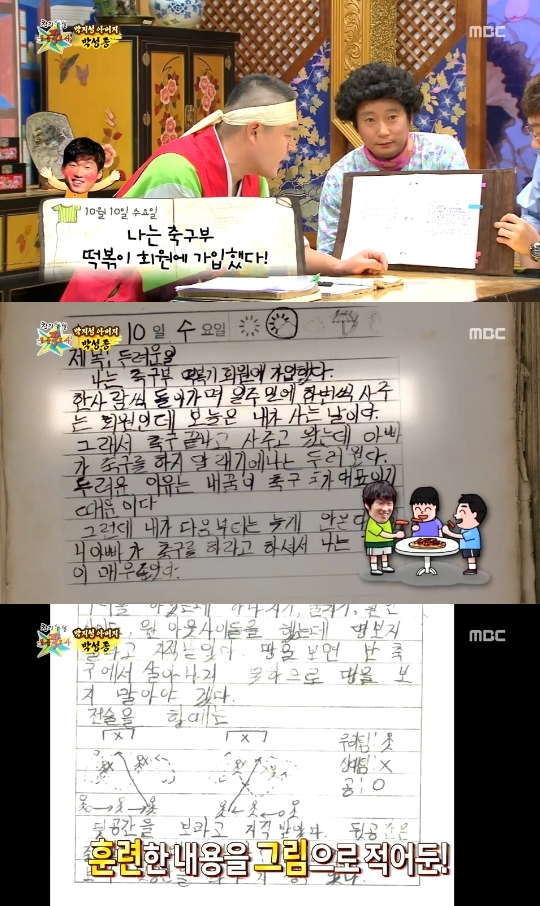 박지성 아버지
박성종
MBC
10월 10일 수요일
나는 축구부
떡볶이 회원에 가입했다!
박지성 아버지
박성종
MBC
10 일 수 요일
제목: 두려움
나는 축구부 떡볶기 회원에 가입했다.
한사람씩 돌아가며 일주일에 한번씩 사주
는 회원인데 오늘은 내가 사는 날이다.
그래서 축구 끝나고 사주고 왔는데 아빠
가 축구를 하지 말래기에 나는 두려웠다.
두려운 이유는 내꿈이 축구 대표이기
때문이다
그런데 내가 다음부터는 늦게 안온다
니 아빠가 축구를 하라고 하셔서 나는
이 매우 좋았다.
박지성 아버지
박성종
MBC
했는데 땅보지
말라고 지적받았다. 땅을 보면 난 축
구에서 살아나지 못하므로 땅을 보
지 말아야 겠다.
전술을 할때는
X X
우리팀: 옷
상대팀: X
공: O
뒷공간을 보라고 지적받았다. 뒷공간은
훈련한 내용을 그림으로 적어둔!